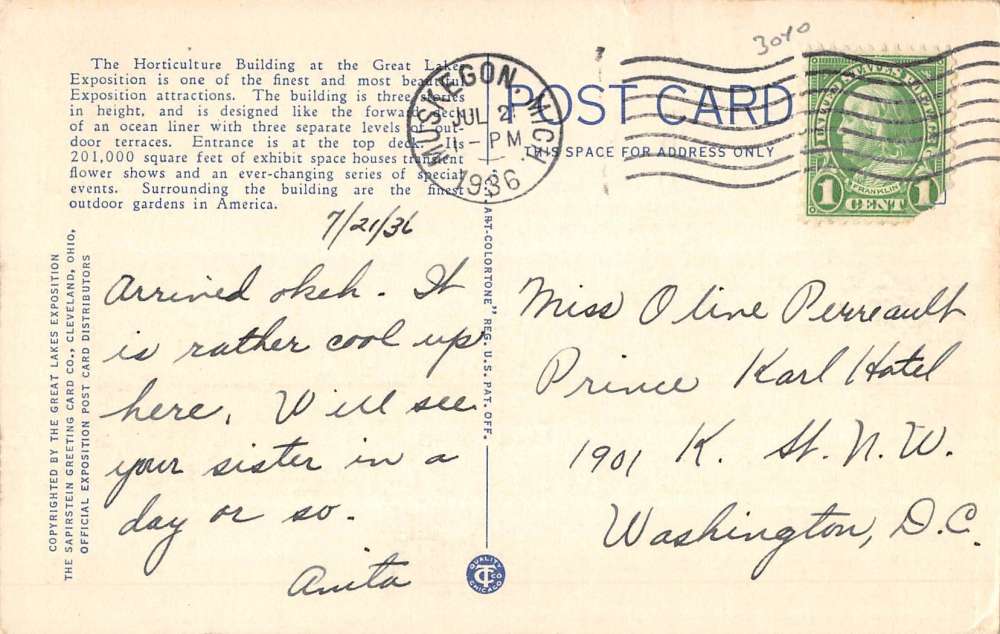 The Horticulture Building at the Great Lakes
Exposition is one of the finest and most beautiful
Exposition attractions. The building is three stories
in height, and is designed like the forward deck
of an ocean liner with three separate levels of out-
door terraces. Entrance is at the top deck. Its
201,000 square feet of exhibit space houses transient
flower shows and an ever-changing series of special
events. Surrounding the building are the finest
outdoor gardens in America.
COPYRIGHTED BY THE GREAT LAKES EXPOSITION
THE SAPIRSTEIN GREETING CARD CO., CLEVELAND, OHIO,
OFFICIAL EXPOSITION POST CARD DISTRIBUTORS
7/21/36
Arrived okeh. It
is rather cool up
here. Will see
your sister in a
day or so.
Anita
ART-COLORTONE" REG. U.S. PAT. OFF.
QUALITY
CT CO
CHICAGO
MUSKEGON, MICH.
JUL 2
1 - PM
1936
3040
POST CARD
THIS SPACE FOR ADDRESS ONLY
FRANKLIN
1 CENT 1
Miss Olive Perreault
Prince Karl Hotel
1901 K. St. N.W.
Washington, D.C.